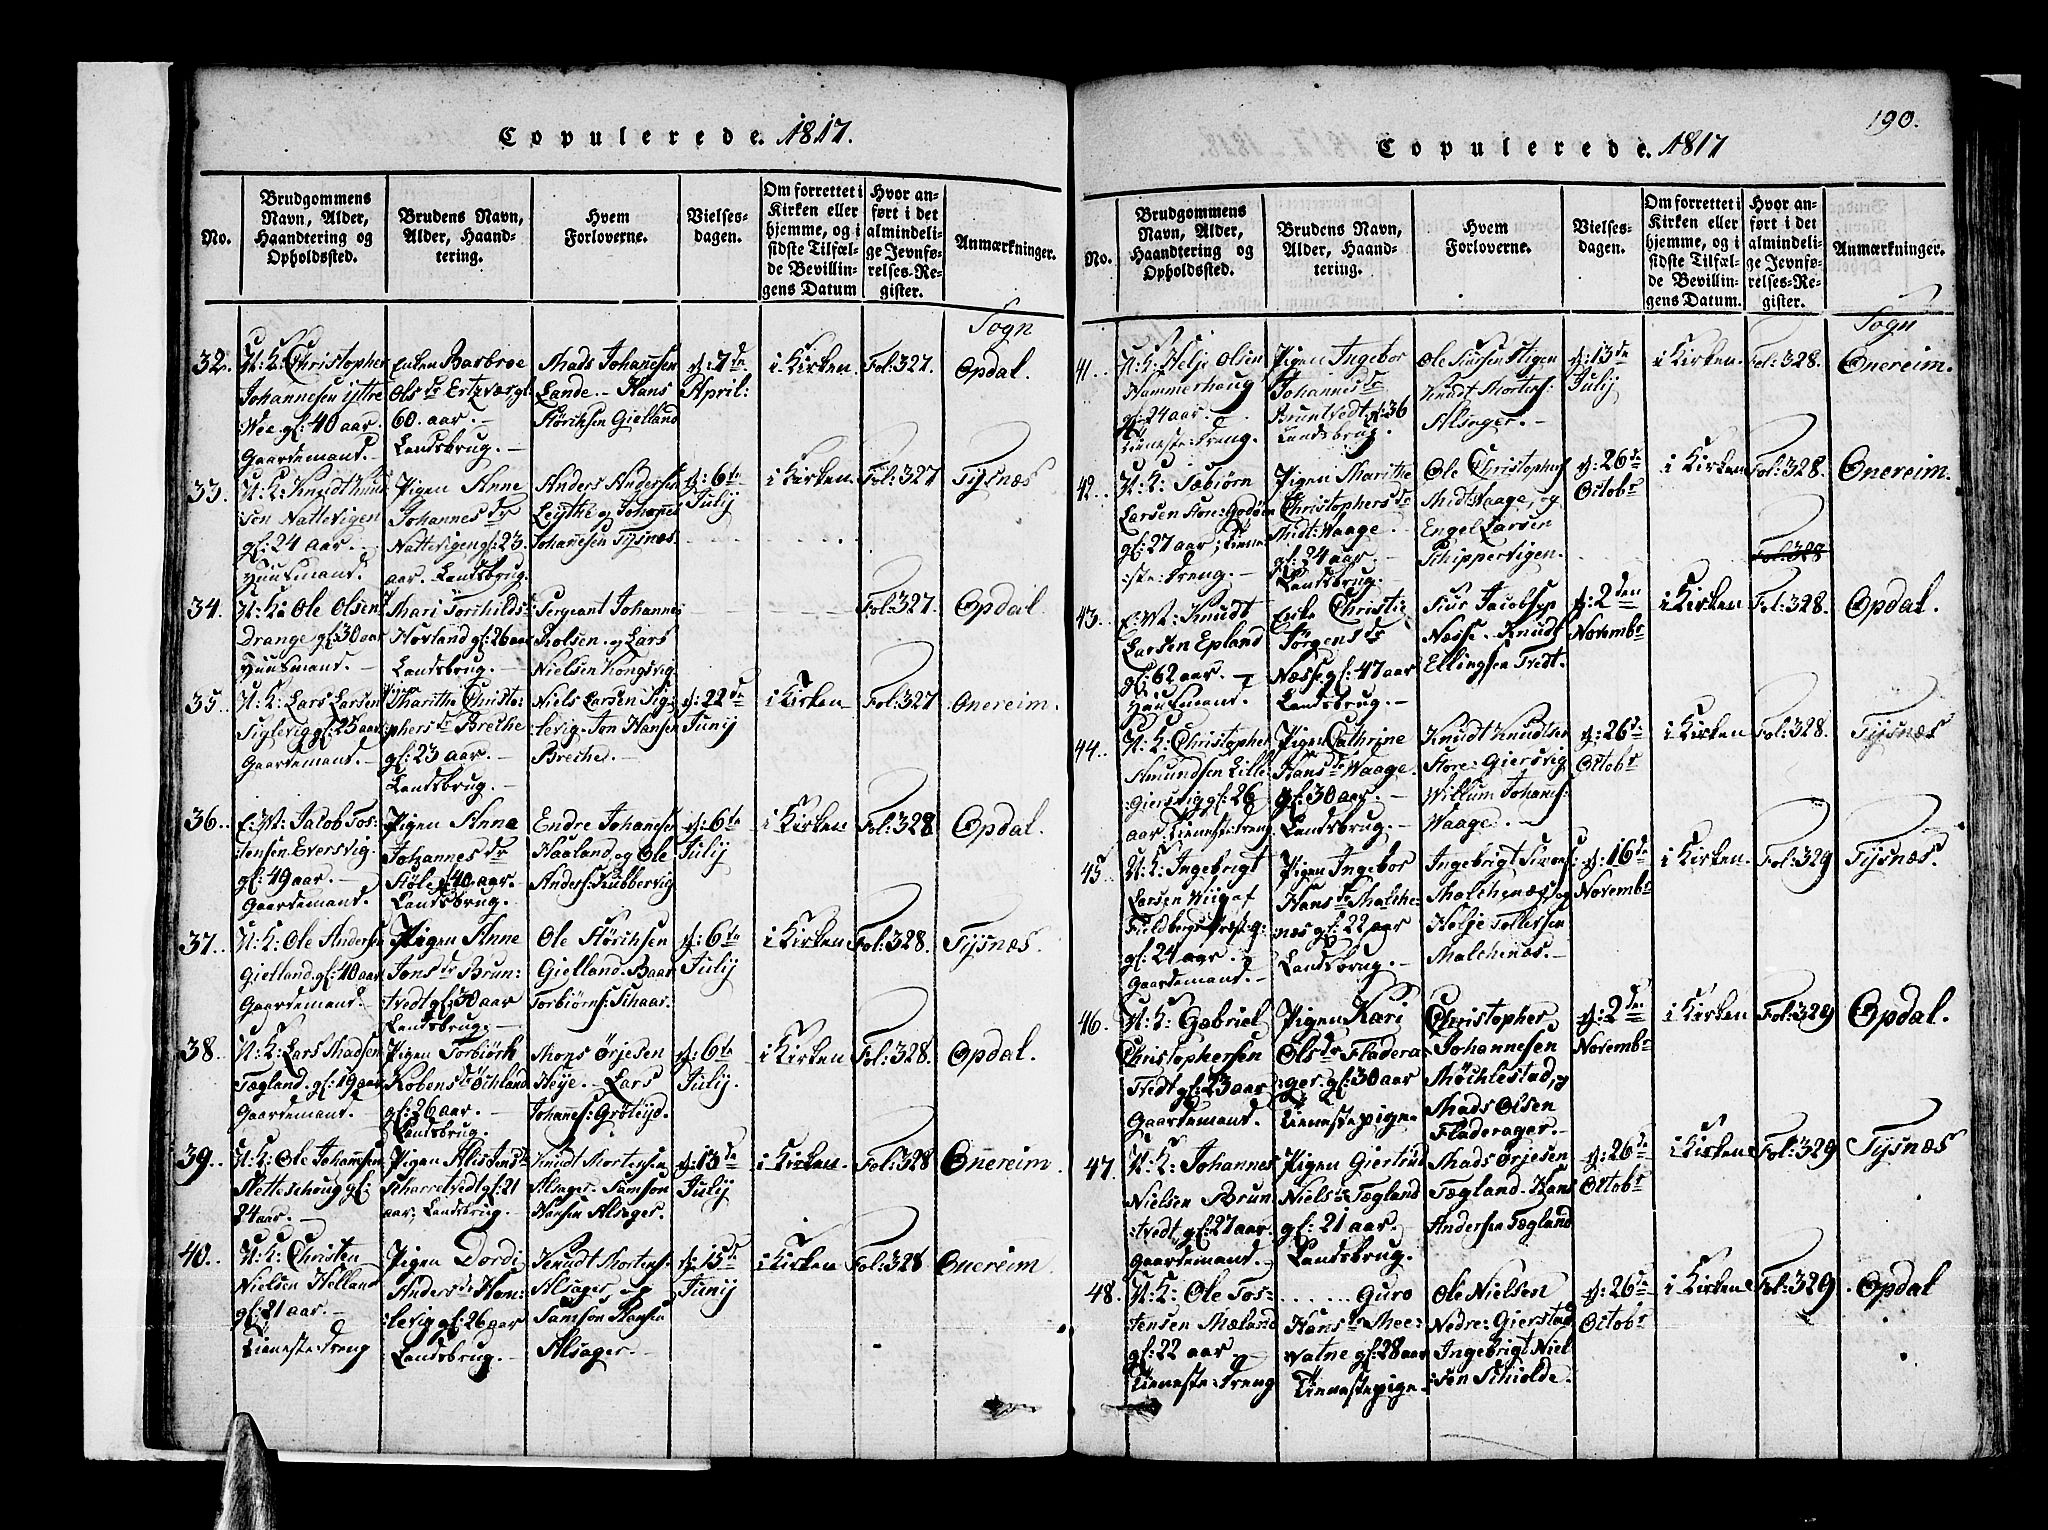 Copulerede. 1817.
No.
Brudgommens
Navn, Alder,
Haandtering og
Opholdssted.
Brudens Navn,
Alder, Haand-
tering.
Hvem
Forloverne.
Vielses-
dagen.
Om forrettet i
Kirken eller
hjemme, og i
sidste Tilfæl-
de Bevillin-
gens Datum
Hvor an-
ført i det
almindeli-
ge Jevnfø-
relses-Re-
gister.
Anmærkninger.
Sogn
32.
U:K: Christopher
Johannesen ijttre
Wee gl: 40 aar.
Gaardemand. -
Enken Barbroe
Ols dr Ertzvær gl:
60. aar. -
Landsbrug. -
Mads Johanesen
Lande. - Hans
Størchsen Gielland
d: 7de
April:
i Kirken
Fol: 327.
Opdal.
33.
U:K: Knudt Knud
sen Nattevigen
gl: 24 aar. -
Huusmand. -
Pigen Anne
Johannes dr
Nattevigen gl: 23.
aar. Landsbrug.
Anders Andersen
Leijthe og Johanes
Johanesen Tysnæs.
d: 6te
Julij
i Kirken.
Fol: 327
Tysnæs
34.
U:K: Ole Olsen
Drange gl: 30 aar
Huusmand. -
Mari Torchilds dr
Hovland gl: 26 aar
Landsbrug. -
Sergeant Johanne
Rolsen og Lars
Nielsen Kongsvig
Fol: 327.
Opdal.
35.
U:K: Lars Larsen
Siglevig gl: 25 aar
Gaardemand. -
Marithe Christo-
phers dr Brethe
gl: 23 aar. -
Landsbrug. -
Niels Larsen Sig-
levig. Jon Hansen
Brethe. -
d: 22de
Junij
i Kirken
Fol: 327
Onereim.
36.
E:M: Jacob Tos:
tensen Eversvig.
gl: 49 aar. -
Gaardemand. -
Pigen Anna
Johannes dr
Støle gl: 40 aar.
Landsbrug. -
Endre Johanesen
Haaland, og Ole
Anders: Skubbervig
d: 6te
Julij
i Kirken
Fol: 328
Opdal.
37.
U:K: Ole Andersen
Gielland. gl: 40 aar
Gaardemand. -
Pigen Anne
Jons dr Brun:
tvedt gl: 30 aar
Landsbrug. -
Ole Størchsen
Gielland. Baar
Torbiørns: Skaar.
d: 6te
Julij
i Kirken
Fol: 328.
Tysnæs.
38.
U:K: Lars Madsen
Tægland. gl: 19 aar
Gaardemand.
Pigen Torbiørk
Robens dr Øchland
gl: 26 aar. -
Landsbrug. -
Mons Ørjesen
Heije. - Lars
Johanes: Grøteijd.
d: 6te
Julij.
i Kirken
Fol: 328.
Opdal.
39.
U:K: Ole Johannesen
Slettehoug gl:
24 aar. -
Pigen
Scharretvedt gl: 21
aar, Landsbrug. -
Knudt Mortensen
Alsager. Samson
Hansen Alsager.
d: 13de
Julij
i Kirken.
Fol: 328
Onereim.
40.
U:K: Christen
Nielsen Helland
gl: 21 aar. -
Tieneste Dreng
Pigen Dordi
Anders dr Hom-
levig gl: 26 aar
Landsbrug. -
Knudt Mortens:
Alsager, og
Samson Hansen
Alsager. -
d: 15de
Junij
i Kirken
Fol: 328
Onereim
190.
Copulerede. 1817
No.
Brudgommens
Navn, Alder,
Haandtering og
Opholdssted.
Brudens Navn,
Alder, Haand-
tering.
Hvem
Forloverne.
Vielses-
dagen.
Om forrettet i
Kirken eller
hjemme, og i
sidste Tilfæl-
de Bevillin-
gens Datum.
Hvor an-
ført i det
almindeli-
ge Jevnfø-
relses-Re-
gister.
Anmærkninger.
Sogn
41.
U:K: Helje Olsen
Hammerhoug
gl: 24 aar. -
Tieneste-Dreng.
Pigen Ingebor
Johannes dr
Bruntvedt gl: 36
Landsbrug. -
Ole Siursen Stigen
Knudt Mortens:
Alsager. -
d: 13de
Julij
i Kirken.
Fol: 328.
Onereim.
42.
U:K: Sæbiørn
Larsen Store-Godøen
gl: 27 aar; Tiene-
ste-Dreng. -
Pigen Marithe
Christophers dr
Midt-Waage.
gl: 24 aar. -
Landsbrug. -
Ole Christophers
Midt Waage, og
Engel Larsen
Schippervigen.
d: 26de
Octobr
i Kirken
Fol: 328.
Onereim.
Fol: 328
43.
E:M: Knudt
Larsen Epland
gl: 62 aar. -
Huusmand.
Enke Christie
Jørgens dr
Næsse gl: 47 aar
Landsbrug. -
Siur Jacobsen
Næsse. Knudt
Ellingsen Tvedt.
d: 2den
Novembr
i Kirken
Fol: 328.
Opdal.
44.
U:K: Christopher
Amundsen Lille-
Giersvig gl: 26
aar. Tieneste Dreng
Pigen Cathrine
Hans dr Waage.
gl: 30 aar. -
Landsbrug. -
Knudt Knudtsen
Store-Giersvig
Willum Johanes:
Waage. -
d: 26de
Octobr
i Kirken
Fol: 328.
Tysnæs
45.
U:K: Ingebrigt
Larsen Wiig af
Fieldbergs Præste-g:
gl: 24 aar. -
Gaardemand. -
Pigen Ingebor
Hans dr Malche-
næs gl: 22 aar
Landsbrug. -
Ingebrigt Simons:
Malchenæs, og
Helje Tollefsen
Malchenæs. -
d: 16de
Novembr
i Kirken.
Fol: 329
Tysnæs.
46.
U:K: Gabriel
Christophersen
Tvedt gl: 23 aar
Gaardemand. -
Pigen Kari
Ols dr Fladera-
ger. gl: 30 aar
Tieneste pige.
Christopher
Johannesen
Møchlestad, og
Mads Olsen
Fladerager. -
d: 2den
Novembr
i Kirken
Fol: 329
Opdal.
47.
U:K: Johannes
Nielsen Brun
tvedt, gl: 27 aar.
Gaardemand. -
Pigen Giertrud
Niels dr Tægland
gl: 21 aar.
Landsbrug.
Mads Ørjesen
Tægland. Hans
Andersen Tægland
d: 26de
Octobr
i Kirken
Fol: 329
Tysnæs
48.
U:K: Ole Tos-
tensen Mæland
gl: 22 aar -
Tieneste-Dreng
...... Guro
Hans dr Mee-
Watne gl: 28 aar
Tienestepige
Ole Nielsen
Nedre-Gierstad
Ingebrigt Niel
sen Schielde.
d: 26de
Octobr
i Kirken
Fol: 329
Opdal